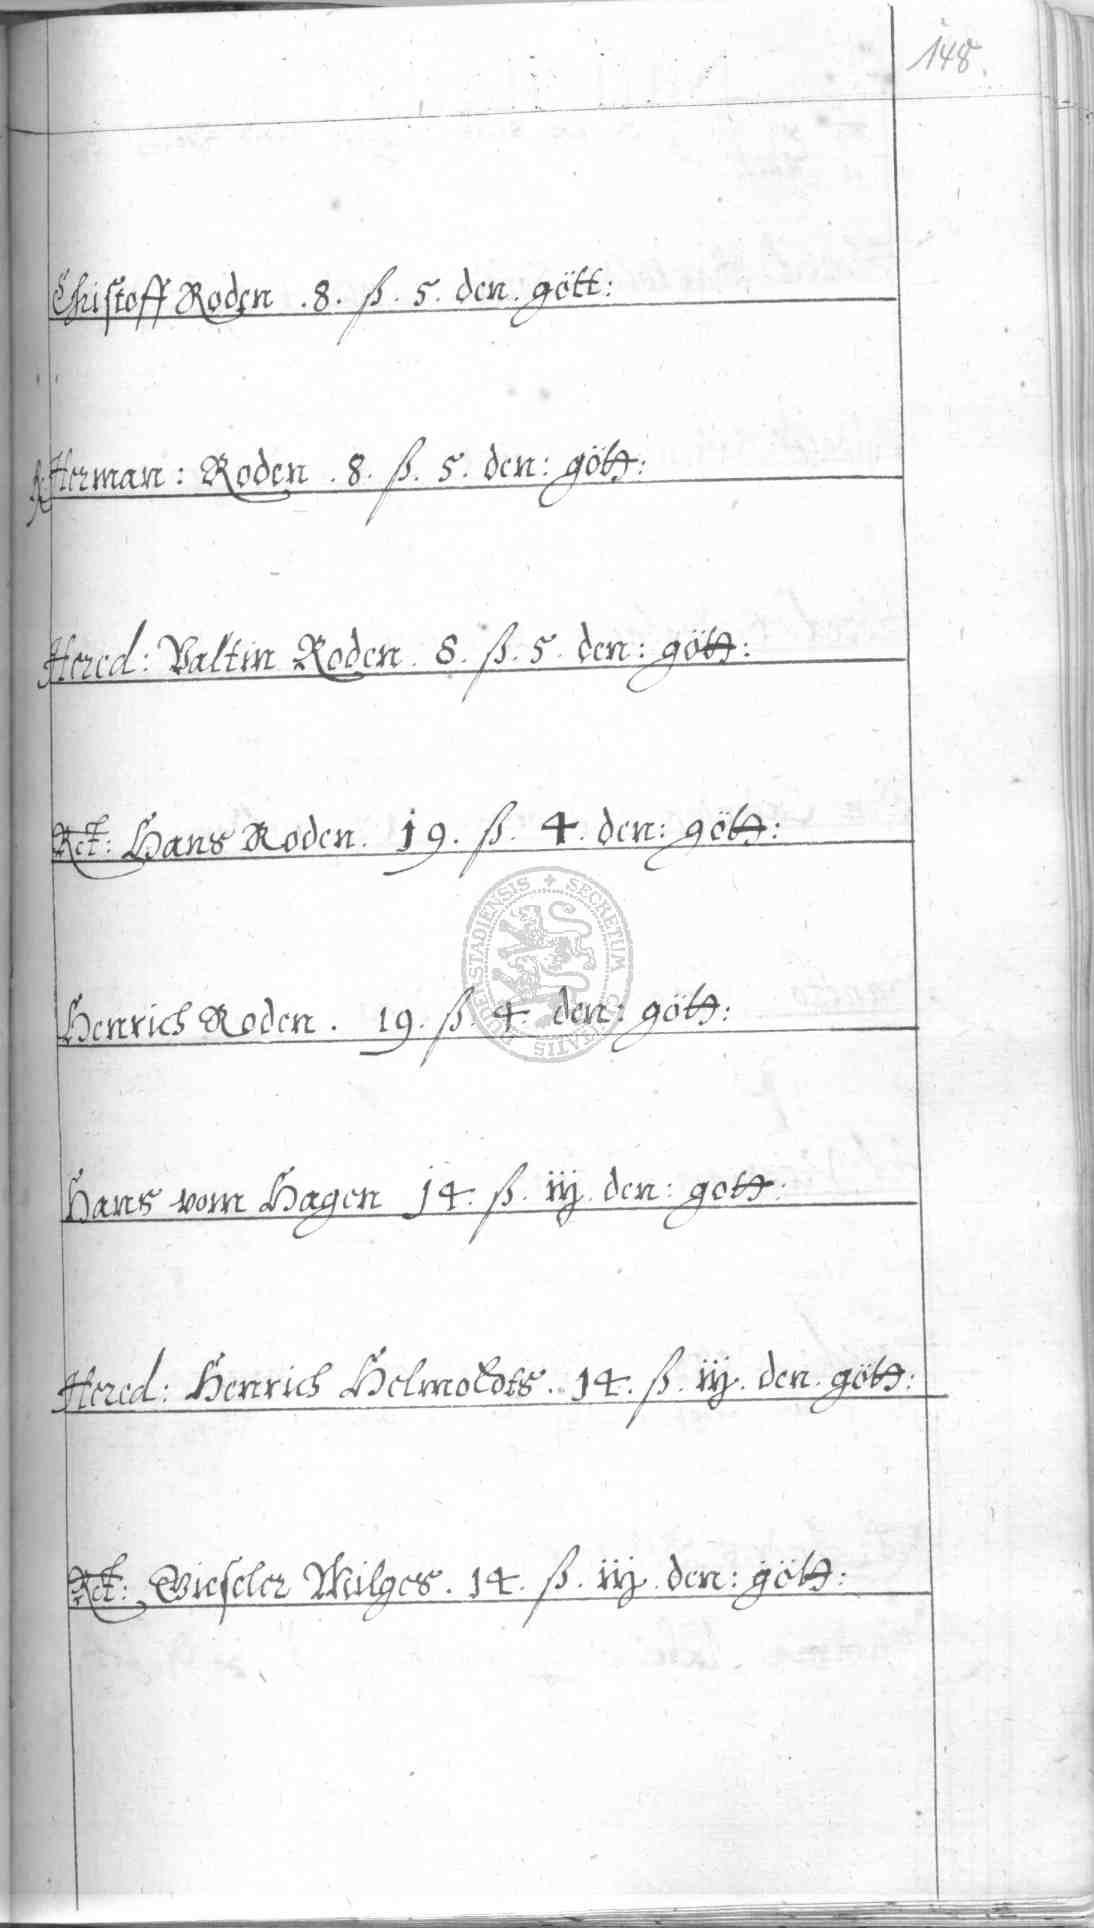 148.
Christoff Roden . 8. ß. 5. den. gött:
Herman: Roden . 8. ß. 5. den: gött:
Hered: Valtin Roden . 8. ß. 5. den: gött:
Rct: Hans Roden. 19. ß. 4. den: gött:
DUDERSTADIENSIS + SECRETUM CIVITATIS
Henrich Roden . 19. ß. 4. den: gött:
Hans vom Hagen 14. ß. iij. den: gott:
Hered: Henrich Helmoldts. 14. ß. iij. den. gött:
Rct: Wilges. 14. ß. iij. den: gött: